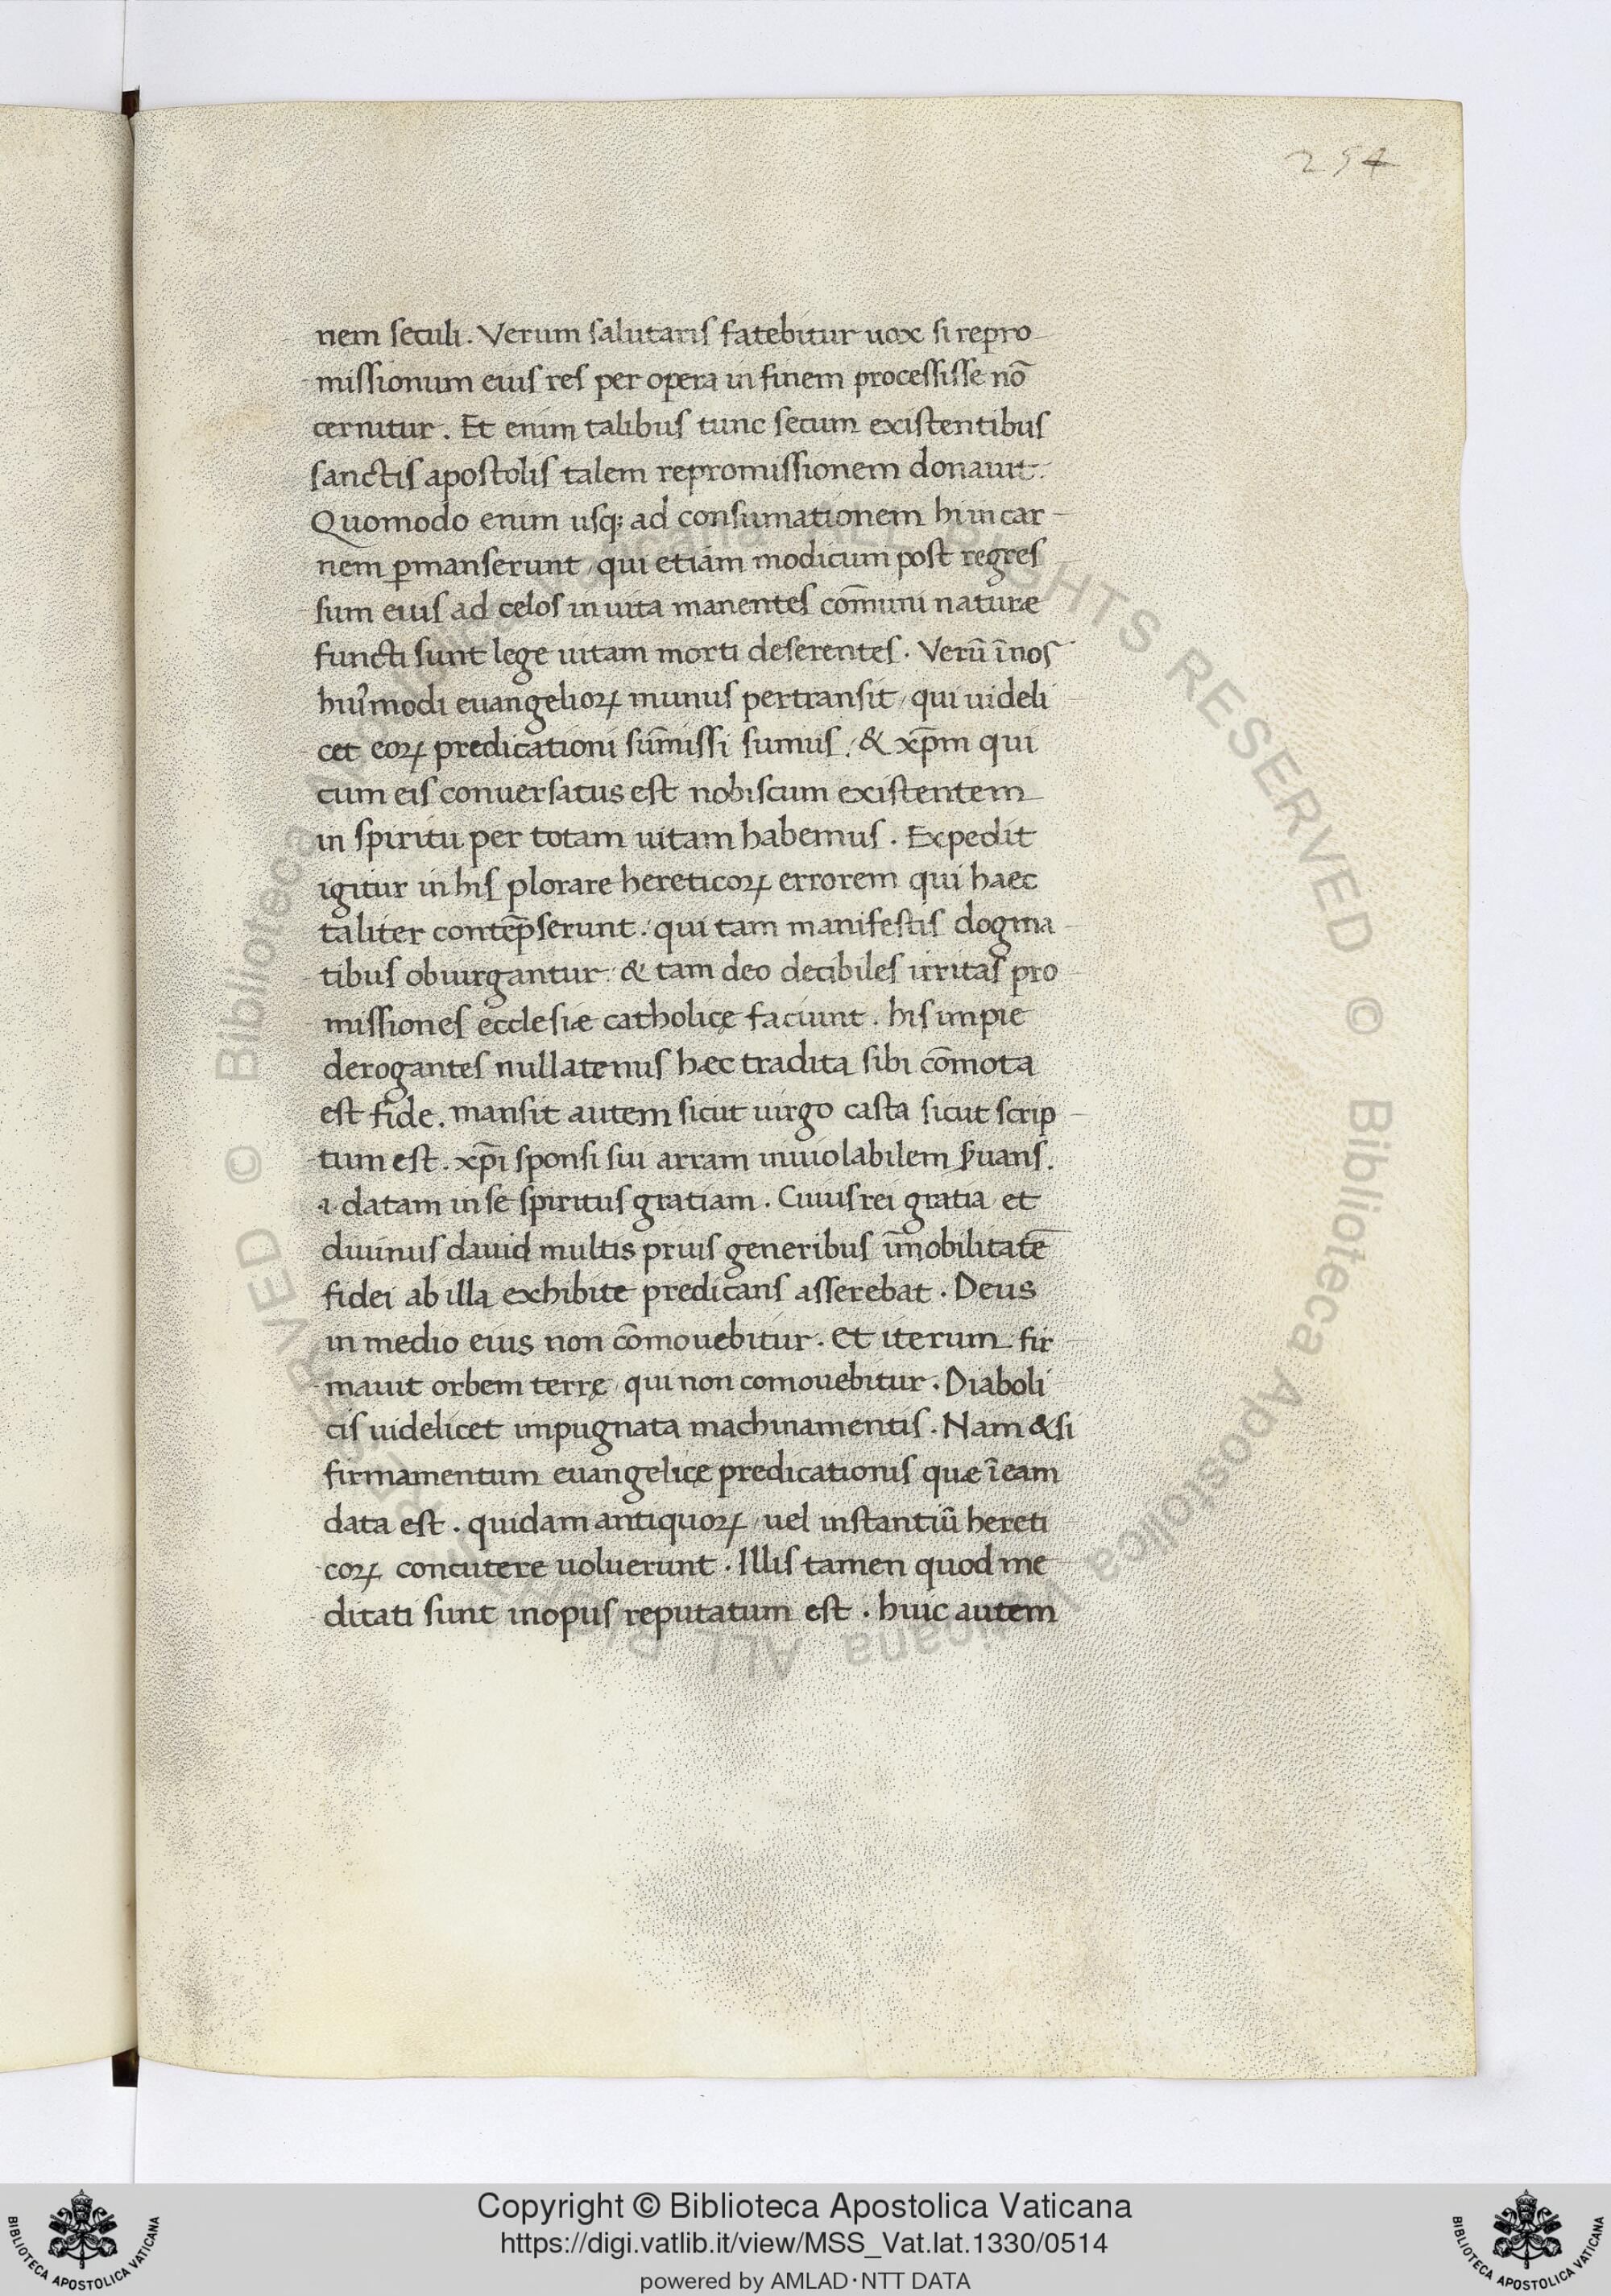 254
nem seculi. Verum salutaris fatebitur uox si repro
missionum eius res per opera in finem processisse nō
cernitur. Et enim talibus tunc secum existentibus
sanctis apostolis talem repromissionem donauit.
Quomodo enim usq; ad consumationem hi in car
nem ꝑmanserunt, qui etiam modicum post regres
sum eius ad celos in uita manentes com̄uni naturæ
functi sunt lege uitam morti deserentes. Verū ī nos
huiꝰmodi euangelioꝝ munus pertransit, qui uideli
cet eoꝝ predicationi sum̄issi sumus. & xp̄m qui
cum eis conuersatus est nobiscum existentem
in spiritu per totam uitam habemus. Expedit
igitur in his plorare hereticoꝝ errorem qui haec
taliter contēpserunt. qui tam manifestis dogma
tibus obiurgantur. & tam deo decibiles irritas pro
missiones ecclesiæ catholicę faciunt. his impie
derogantes nullatenus hæc tradita sibi cōmota
est fide. mansit autem sicut uirgo casta sicut scrip
tum est. xp̄i sponsi sui arram inuiolabilem ẜuans.
a datam in se spiritus gratiam. Cuius rei gratia et
diuinus dauid multis pruis generibus īmobilitatē
fidei ab illa exhibite predicans asserebat. Deus
in medio eius non cōmouebitur. et iterum fir
mauit orbem terrę, qui non comouebitur. Diaboli
cis uidelicet impugnata machinamentis. Nam & si
firmamentum euangelicę predicationis quæ ī eam
data est. quidam antiquoꝝ, uel instantiū hereti
coꝝ concutere uoluerunt. Illis tamen quod me
ditati sunt inopus reputatum est. huic autem
© Biblioteca Apostolica Vaticana ALL RIGHTS RESERVED
© Biblioteca Apostolica Vaticana ALL RIGHTS RESERVED
Copyright © Biblioteca Apostolica Vaticana
https://digi.vatlib.it/view/MSS_Vat.lat.1330/0514
powered by AMLAD·NTT DATA
BIBLIOTECA APOSTOLICA VATICANA
BIBLIOTECA APOSTOLICA VATICANA